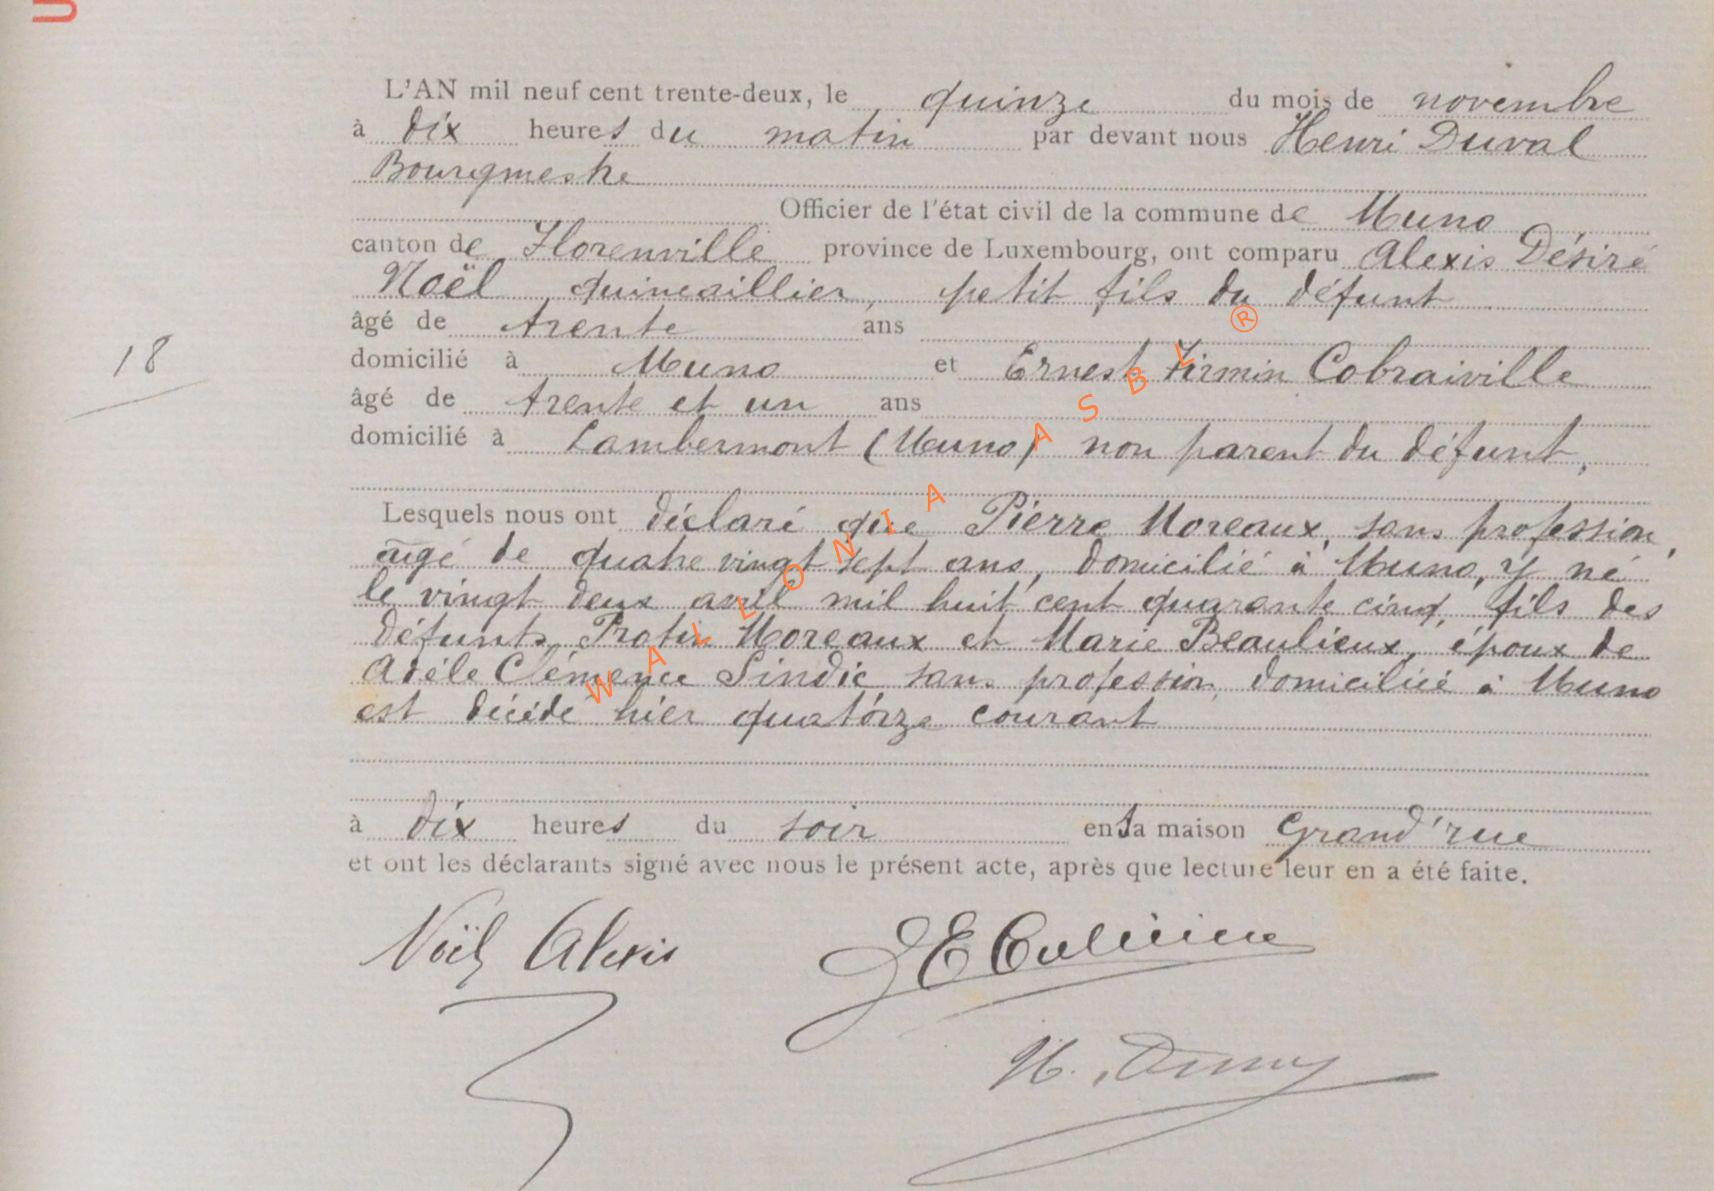 L'AN mil neuf cent trente-deux, le quinze du mois de novembre
à dix heures du matin par devant nous Henri Duval
Bourgmestre
Officier de l'état civil de la commune de Muno
canton de Florenville province de Luxembourg, ont comparu Alexis Désiré
Noël, quincaillier, petit fils du défunt
âgé de trente ans
domicilié à Muno et Ernest Firmin Cobraiville
âgé de trente et un ans
domicilié à Lambermont (Muno) non parent du défunt,
18
Lesquels nous ont déclaré que Pierre Moreaux, sans profession,
âgé de quatre vingt sept ans, domicilié à Muno, y né
le vingt deux avril mil huit cent quarante cinq, fils des
défunts Protin Moreaux et Marie Beaulieux, époux de
Adèle Clémence Sindic sans profession, domiciliée à Muno
est décédé hier quatorze courant
à dix heures du soir en sa maison Grand'rue
et ont les déclarants signé avec nous le présent acte, après que lecture leur en a été faite.
Noël Alexis
H. Duval
WALLONIA ASBL ®